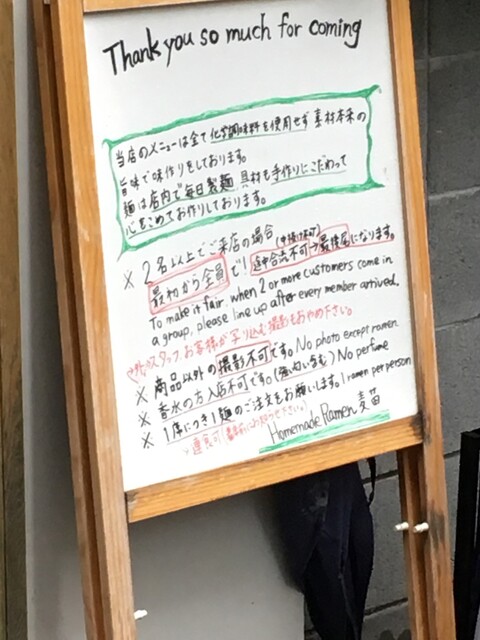 Thank you so much for coming
当店のメニューは全て化学調味料を使用せず素材本来の
旨味で味作りをしております。
麺は店内で毎日製麺 具材も手作りにこだわって
心をこめてお作りしております。
※ 2名以上でご来店の場合 (中抜け不可)
最初から全員で! 途中合流不可→最後尾になります。
To make it fair, when 2 or more customers come in
a group, please line up after every member arrived.
スタッフ、お客様が写り込む撮影もおやめ下さい。
※ 商品以外の撮影不可です。No photo except ramen
※ 香水の方入店不可です。(強い匂い含む) No perfume
※ 1席につき1麺のご注文をお願いします。1 ramen per person
Homemade Ramen 麦苗